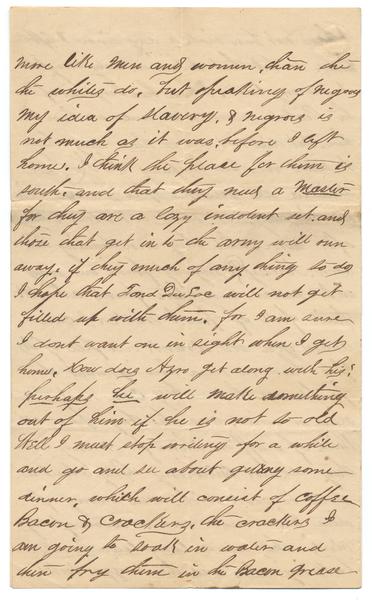 more like men and women, than the
the whites do. but speaking of negroes
my idea of slavery, & negroes is
not much as it was, before I left
home. I think the place for them is
south. and that they need a Master
for they are a lazy indolent set. and
those that get in to the army will run
away. if they much of any thing so do
I hope that Fond Du Lac will not get
filled up with them. for I am sure
I dont want one in sight when I get
home. How does Azro get along with his?
perhaps he will make something
out of him if he is not so old
Well I must stop writing for a while
and go and see about geting some
dinner. which will consist of coffee
Bacon & Crackers. the crackers I
am going to soak in water and
then fry them in the Bacon grease